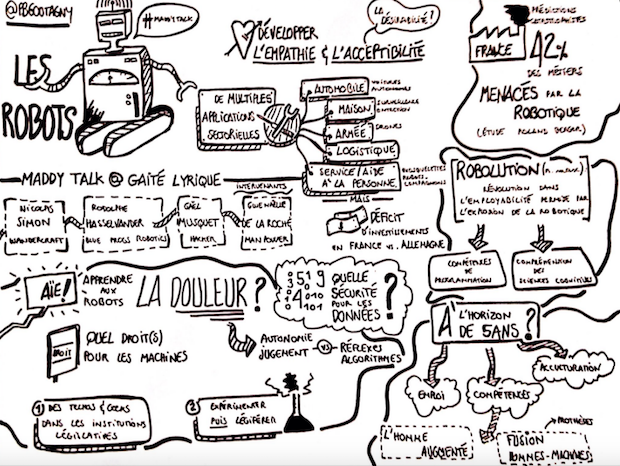 @PBGCOTAGNY
#MADDYTALK
LES
ROBOTS
DÉVELOPPER
L'EMPATHIE & L'ACCEPTIBILITÉ
LA DÉSIRABILITÉ !
DE MULTIPLES
APPLICATIONS
SECTORIELLES
AUTOMOBILE
VOITURES
AUTONOMES
MAISON
SURVEILLANCE
ENTRETIEN
ARMÉE
DRONES
LOGISTIQUE
SERVICE/AIDE
À LA PERSONNE
EXOSQUELETTES
ROBOTS
COMPAGNONS
MAIS
DÉFICIT
D'INVESTISSEMENTS
EN FRANCE VS. ALLEMAGNE
PRÉDICTIONS
CATASTROPHISTES
FRANCE
42%
DES MÉTIERS
MENACÉS PAR LA
ROBOTIQUE
(ÉTUDE ROLAND BERGER)
MADDY TALK @ GAITÉ LYRIQUE
INTERVENANTS
NICOLAS
SIMON
WANDERCRAFT
RODOLPHE
HASSELVANDER
BLUE FROG ROBOTICS
GAËL
MUSQUET
HACKER
GWENAËLLE
DE LA ROCHE
MANPOWER
ROBOLUTION
RÉVOLUTION DANS
L'EMPLOYABILITÉ PERMISE PAR
L'EXPLOSION DE LA ROBOTIQUE
COMPÉTENCES DE
PROGRAMMATION
COMPRÉHENSION
DES
SCIENCES COGNITIVES
AÏE!
APPRENDRE
AUX
ROBOTS
LA DOULEUR ?
QUELLE
SÉCURITÉ
POUR LES
DONNÉES
?
DROIT
QUEL DROIT(S)
POUR LES MACHINES
AUTONOMIE
JUGEMENT
VS
RÉFLEXES
ALGORITHMES
À L'HORIZON
DE 5ANS ?
EMPLOI
COMPÉTENCES
ACCULTURATION
PROTHÈSES
L'HOMME
AUGMENTÉ
FUSION
HOMMES-MACHINES
1 DES TECHNOS & GEEKS
DANS LES INSTITUTIONS
LÉGISLATIVES
2 EXPÉRIMENTER
PUIS LÉGIFÉRER